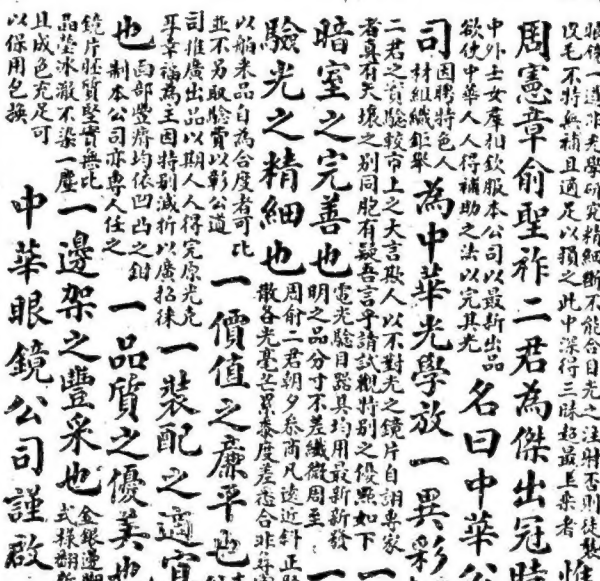 一道非光學研究精細斷不能合目光之注射否則徒費
不特無補且適足以損之此中深得三昧超最上乘者
惟
周憲章俞聖祚二君為傑出冠時
中外士女羣相欽服本公司以最新出品
欲使中華人人得補助之法以完其光
名曰中華公
司
因聘特色人
材組織鉅舉
為中華光學放一異彩
二君之資驗較市上之大言欺人以不對光之鏡片自詡專家
者真有天壤之別同胞有疑吾言乎請試觀特別之優點如下
一
暗室之完善也
電光驗目器具均用最新新發
明之品分寸不差纖微周至
一
驗光之精細也
周俞二君朝夕參商凡遠近斜正
散各光毫芒累黍度差悉合非尋
以舶來品自為合度者可比
並不另取驗費以彰公道
一價值之廉平也
司推廣出品以期人人得完原光免
為主因特別減折以廣招徠
一裝配之適宜
也
面部豐瘠均依凹凸之鉗
制本公司亦專人任之
一品質之優美也
鏡片胚質堅實無比
晶瑩冰澈不染一塵
一邊架之豐采也
金銀邊脚
式樣翻新
且成色充足可
以保用包換
中華眼鏡公司謹啟